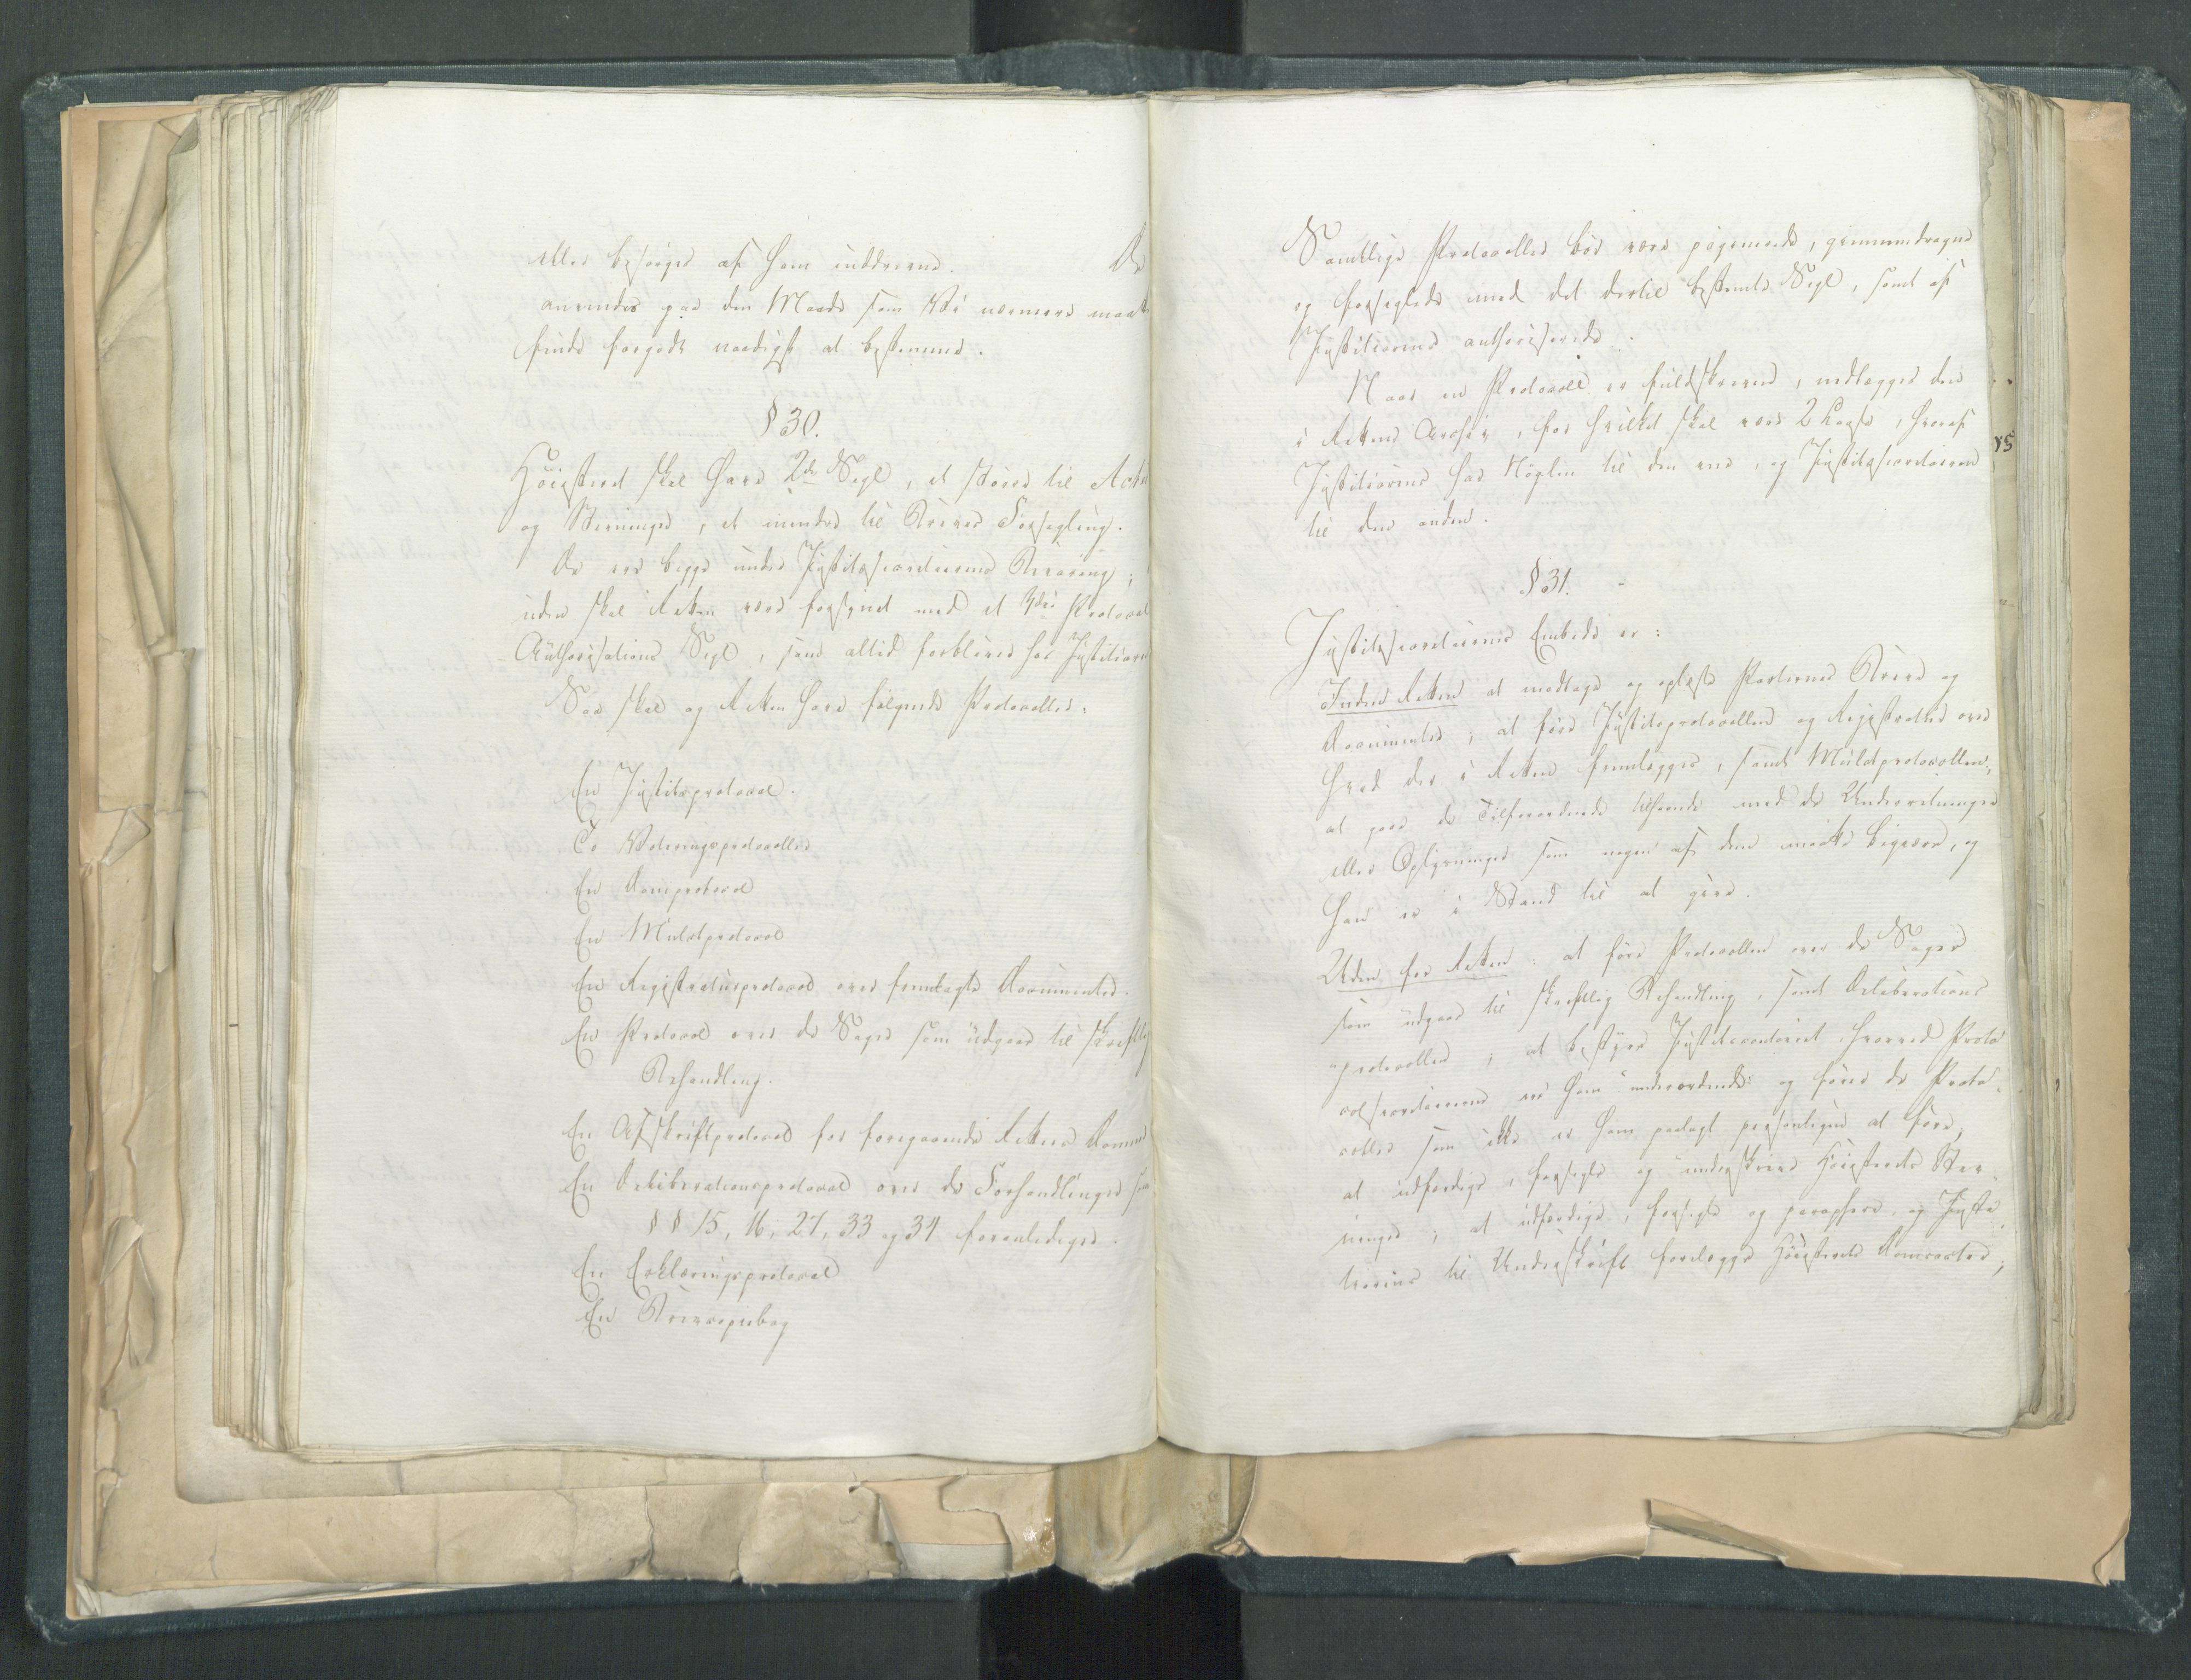 eller besørges af ham inddrevne. De
anvendes paa den Maade som Vi nærmere maatte
finde forgodt naadigst at bestemme.
§ 30.
Høiesteret skal have 2de Segl, et større til Acters
og Stevninger, et mindre til Breves Forsegling.
De ere begge under Justitssecretairens Bevaring;
uden skal Retten være forsynet med et 3die Protocol
Authorisations Segl, som altid forbliver hos Justitiarius
Saa skal og Retten have følgende Protocoller:
En Justitsprotocol.
To Voteringsprotocoller
En Domsprotocol
En Mulctprotocol
En Registraturprotocol over fremlagte Documenter.
En Protocol over de Sager som udgaae til skriftlig
Behandling.
En Afskriftprotocol for foregaaende Retters Domme
En Deliberationsprotocol over de Forhandlinger som
§ § 15, 16, 27, 33 og 34 foranlediges.
En Erklæringsprotocol
En Brevcopiebog
Samtlige Protocoller bør være paginerede, gjennemdragne
og forseglede med det dertil bestemte Segl, samt af
Justitiarius authoriserede.
Naar en Protocoll er fuldskreven, nedlægges den
i Rettens Archiv, for hvilket skal være 2 Laase, hvoraf
Justitiarius har Nøglen til den ene, og Justitssecretairen
til den anden.
§ 31.
Justitssecretairens Embede er:
Inden Retten at modtage og oplæse Parternes Breve og
Documenter; at føre Justitsprotocollen og Registratur over
hvad der i Retten fremlægges, samt Mulctprotocollen;
at gaae de Tilforordnede tilhaande med de Underretninger
eller Oplysninger som nogen af dem maatte begjære, og
han er i Stand til at give.
Uden for Retten: at føre Protocollen over de Sager
som udgaae til skriftlig Behandling, samt Deliberations
protocollen; at bestyre Justitscontoiret, hvorved Proto
colsecretairerne ere ham underordnede og føre de Proto
coller som ikke er ham paalagt personligen at føre;
at udfærdige, forsegle og underskrive Høiesterets Stev
ninger; at udfærdige, forsegle og paraphere, og Justi
tiarius til Underskrift forelægge Høiesterets Domsacter;